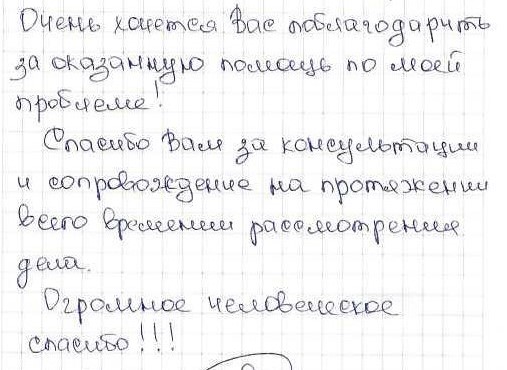 Очень хочется Вас поблагодарить
за оказанную помощь по моей
проблеме!
Спасибо Вам за консультации
и сопровождение на протяжении
всего времени рассмотрения
дела.
Огромное человеческое
спасибо!!!